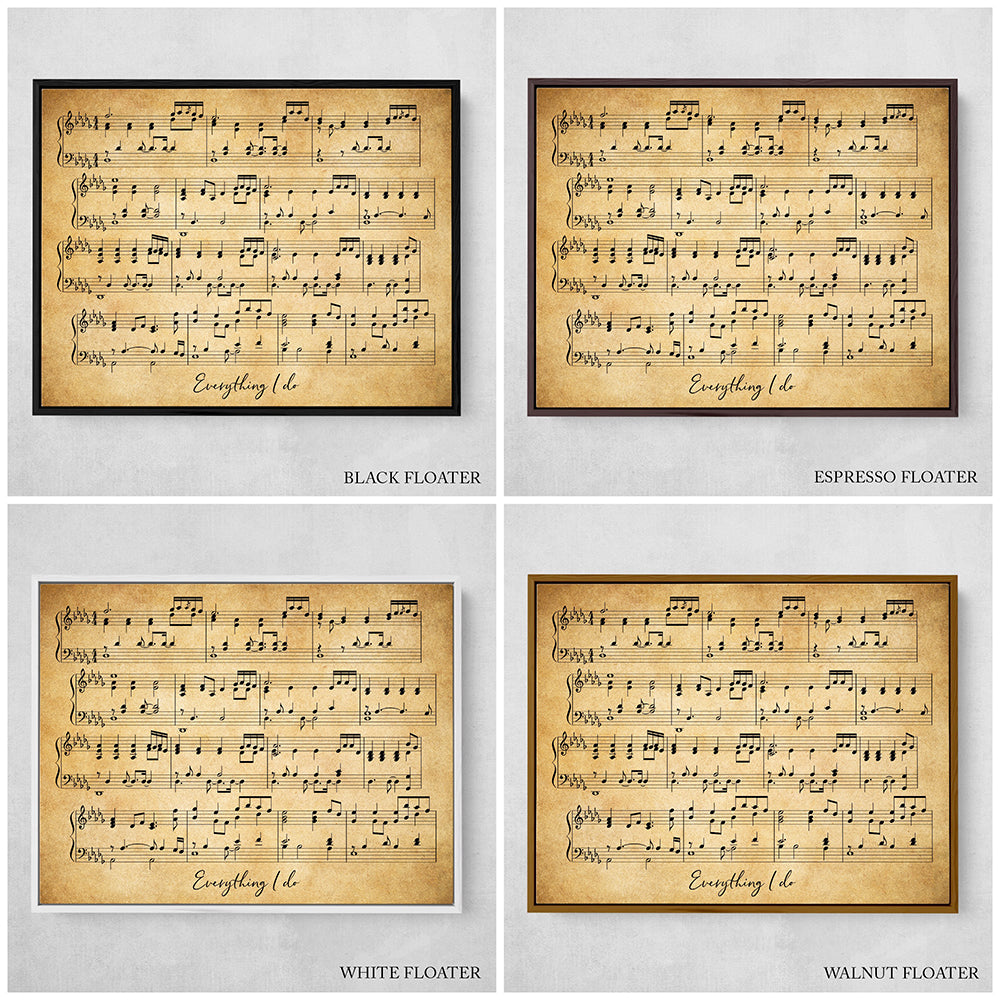 Everything I do
BLACK FLOATER
Everything I do
ESPRESSO FLOATER
Everything I do
WHITE FLOATER
Everything I do
WALNUT FLOATER